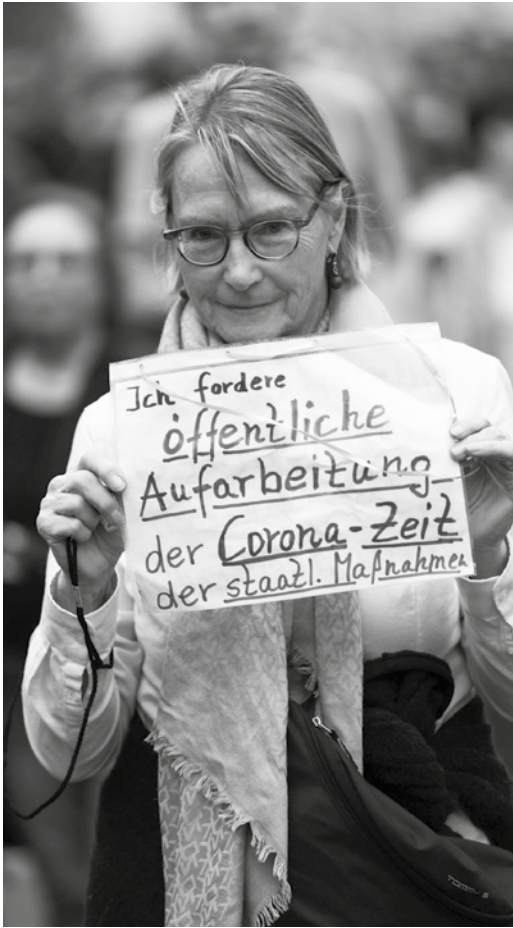 Ich fordere
öffentliche
Aufarbeitung
der Corona-Zeit
der staatl. Maßnahmen
TOMMY